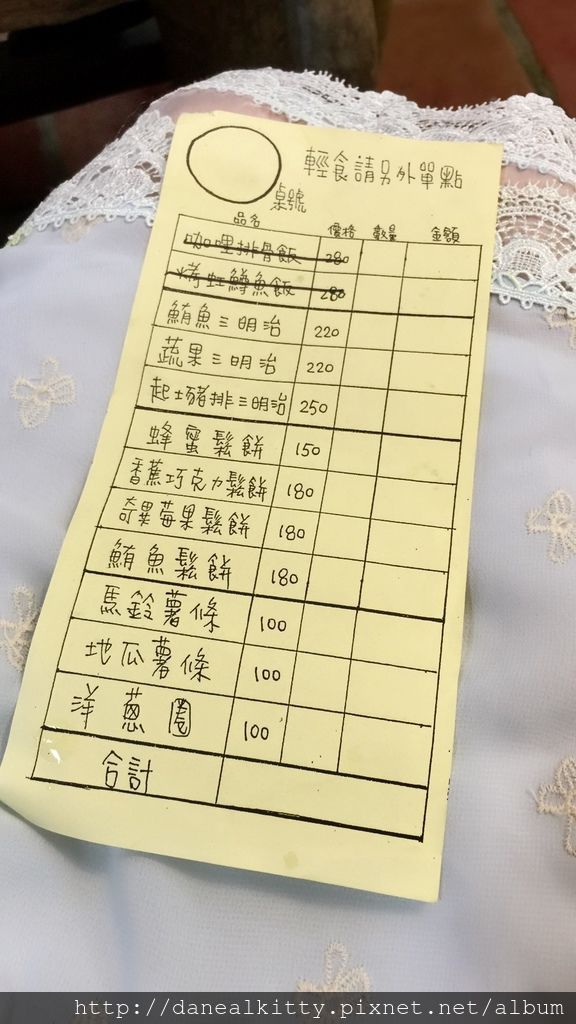 輕食請另外單點
桌號
品名 價格 數量 金額
咖哩排骨飯 280
烤虹鱒魚飯 280
鮪魚三明治 220
蔬果三明治 220
起士豬排三明治 250
蜂蜜鬆餅 150
香蕉巧克力鬆餅 180
奇異莓果鬆餅 180
鮪魚鬆餅 180
馬鈴薯條 100
地瓜薯條 100
洋蔥圈 100
合計
http://danealkitty.pixnet.net/album